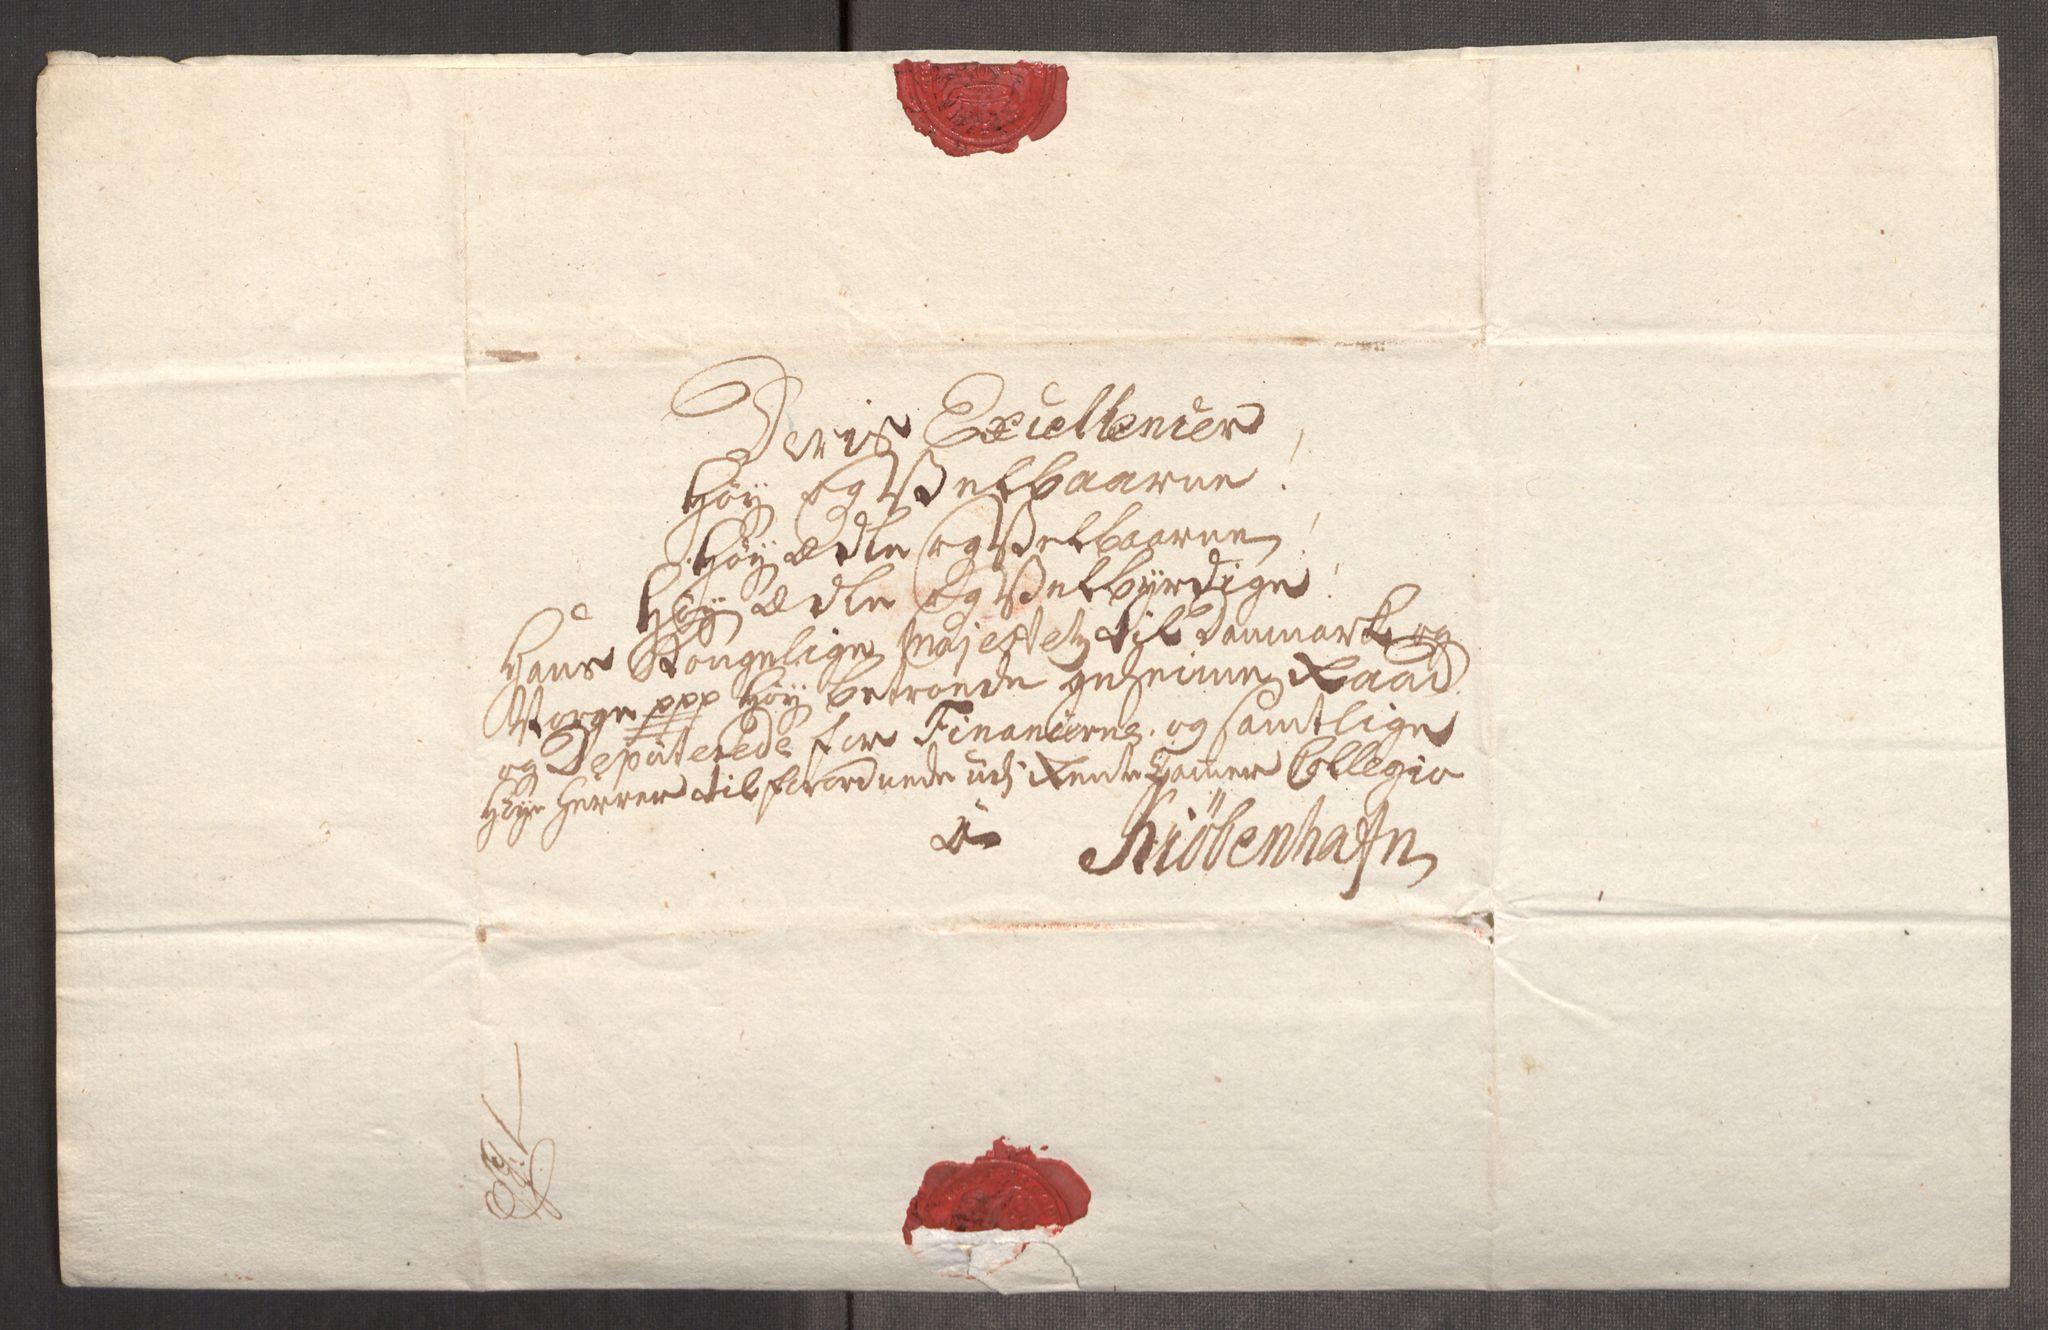 Deris Excellencer
Høy og Velbaarne!
Høyædle og Velbaarne!
Høyædle og Velbyrdige!
Hans Kongelige Majestetz til Danmark og
Norge ppp Høy betroede geheime Raad
og Deputerede for Financerne, og samtlige
Høye Herrer tilforordnede udj Rente Camer Collegio
a Kiøbenhafn